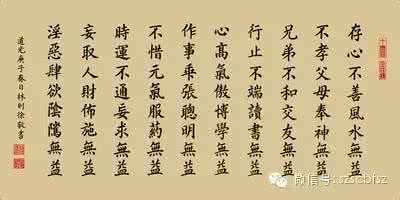 存心不善風水無益
不孝父母奉神無益
兄弟不和交友無益
行止不端讀書無益
心高氣傲博學無益
作事乖張聰明無益
不惜元氣服藥無益
時運不通妄求無益
妄取人財佈施無益
淫惡肆欲陰騭無益
道光庚子春日林則徐敬書
微信号: szscbfsz